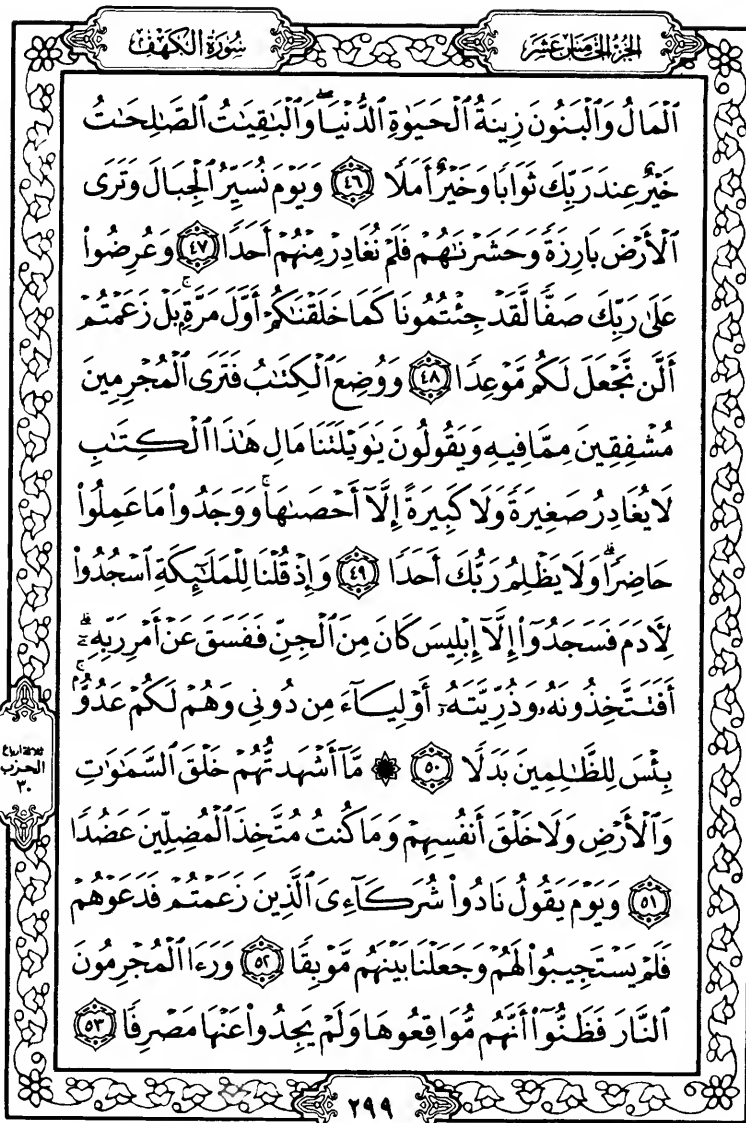 الجزء الخامس عشر
سُورَةُ الكَهْفِ
ٱلْمَالُ وَٱلْبَنُونَ زِينَةُ ٱلْحَيَوٰةِ ٱلدُّنْيَاۖ وَٱلْبَٰقِيَٰتُ ٱلصَّٰلِحَٰتُ
خَيْرٌ عِندَ رَبِّكَ ثَوَابًا وَخَيْرٌ أَمَلًا ٤٦ وَيَوْمَ نُسَيِّرُ ٱلْجِبَالَ وَتَرَى
ٱلْأَرْضَ بَارِزَةً وَحَشَرْنَٰهُمْ فَلَمْ نُغَادِرْ مِنْهُمْ أَحَدًا ٤٧ وَعُرِضُوا۟
عَلَىٰ رَبِّكَ صَفًّا لَّقَدْ جِئْتُمُونَا كَمَا خَلَقْنَٰكُمْ أَوَّلَ مَرَّةٍۭۚ بَلْ زَعَمْتُمْ
أَلَّن نَّجْعَلَ لَكُم مَّوْعِدًا ٤٨ وَوُضِعَ ٱلْكِتَٰبُ فَتَرَى ٱلْمُجْرِمِينَ
مُشْفِقِينَ مِمَّا فِيهِ وَيَقُولُونَ يَٰوَيْلَتَنَا مَالِ هَٰذَا ٱلْكِتَٰبِ
لَا يُغَادِرُ صَغِيرَةً وَلَا كَبِيرَةً إِلَّآ أَحْصَىٰهَاۚ وَوَجَدُوا۟ مَا عَمِلُوا۟
حَاضِرًاۗ وَلَا يَظْلِمُ رَبُّكَ أَحَدًا ٤٩ وَإِذْ قُلْنَا لِلْمَلَٰٓئِكَةِ ٱسْجُدُوا۟
لِءَادَمَ فَسَجَدُوٓا۟ إِلَّآ إِبْلِيسَ كَانَ مِنَ ٱلْجِنِّ فَفَسَقَ عَنْ أَمْرِ رَبِّهِۦٓۗ
أَفَتَتَّخِذُونَهُۥ وَذُرِّيَّتَهُۥٓ أَوْلِيَآءَ مِن دُونِى وَهُمْ لَكُمْ عَدُوٌّۢۚ
بِئْسَ لِلظَّٰلِمِينَ بَدَلًا ٥٠ ۞ مَّآ أَشْهَدتُّهُمْ خَلْقَ ٱلسَّمَٰوَٰتِ
وَٱلْأَرْضِ وَلَا خَلْقَ أَنفُسِهِمْ وَمَا كُنتُ مُتَّخِذَ ٱلْمُضِلِّينَ عَضُدًا
٥١ وَيَوْمَ يَقُولُ نَادُوا۟ شُرَكَآءِىَ ٱلَّذِينَ زَعَمْتُمْ فَدَعَوْهُمْ
فَلَمْ يَسْتَجِيبُوا۟ لَهُمْ وَجَعَلْنَا بَيْنَهُم مَّوْبِقًا ٥٢ وَرَءَا ٱلْمُجْرِمُونَ
ٱلنَّارَ فَظَنُّوٓا۟ أَنَّهُم مُّوَاقِعُوهَا وَلَمْ يَجِدُوا۟ عَنْهَا مَصْرِفًا ٥٣
ثلاثة أرباع
الحزب
٣٠
٢٩٩